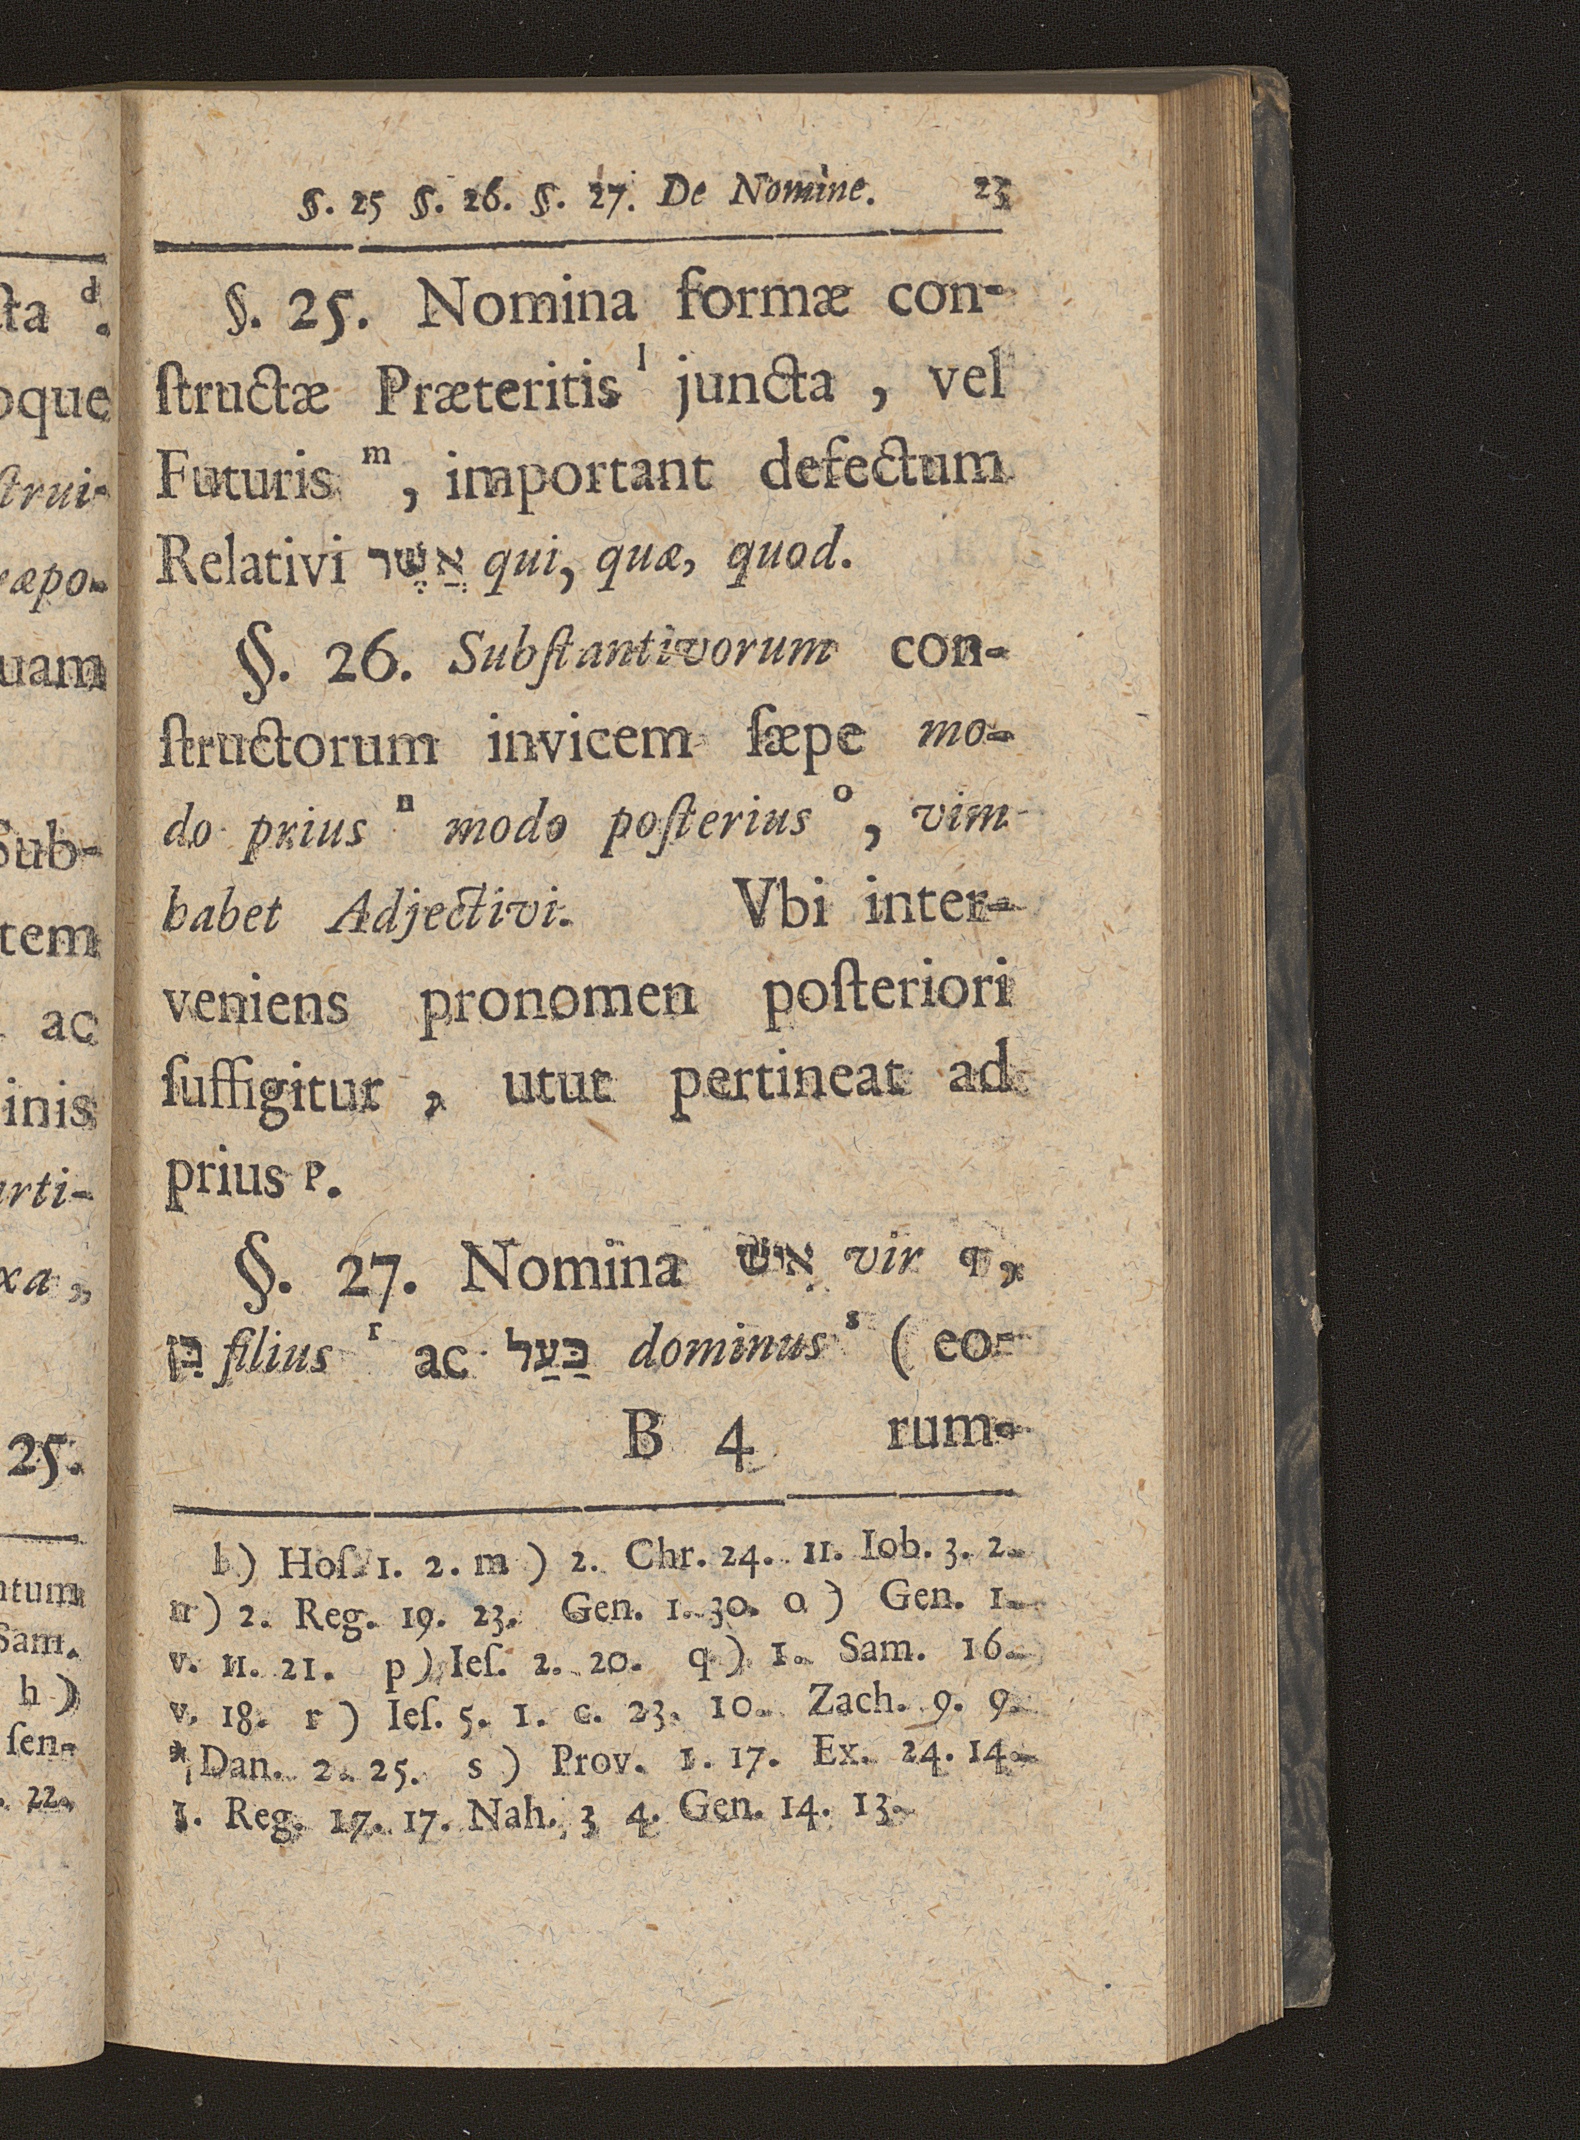 §. 25 §. 26. §. 27. De Nomine. 23
§. 25. Nomina formæ con-
ſtructæ Præteritis l juncta, vel
Futuris m, important defectum
Relativi אֲשֶׁר qui, quæ, quod.
§. 26. Subſtantivorum con-
ſtructorum invicem ſæpe mo-
do prius n modo poſterius o, vim
habet Adjectivi. Vbi inter-
veniens pronomen poſteriori
ſuffigitur, utut pertineat ad
prius p.
§. 27. Nomina אִישׁ vir q,
בֵּן filius r ac בַּעַל dominus s (eo-
B 4 rum-
l) Hoſ. 1. 2. m) 2. Chr. 24. 11. Iob. 3. 2.
n) 2. Reg. 19. 23. Gen. 1. 30. o) Gen. 1.
v. 11. 21. p) Ieſ. 2. 20. q) 1. Sam. 16.
v. 18. r) Ieſ. 5. 1. c. 23. 10. Zach. 9. 9.
* Dan. 2. 25. s) Prov. 1. 17. Ex. 24. 14.
1. Reg. 17. 17. Nah. 3 4. Gen. 14. 13.
ſta d.
oque
ſtrui-
ræpo-
uam
Sub-
tem
ac
inis
arti-
xa,
25.
ntum
Sam.
h)
ſen-
. 22.